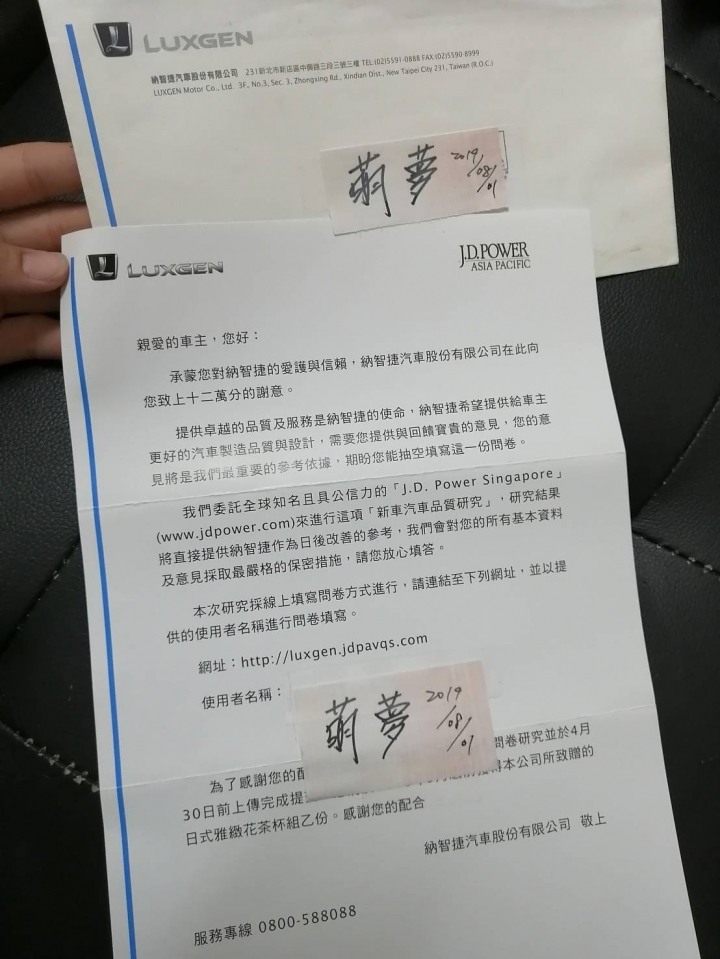 LUXGEN
納智捷汽車股份有限公司 231新北市新店區中興路三段三號三樓 TEL:(02)5591-0888 FAX:(02)5590-8999
LUXGEN Motor Co., Ltd. 3F., No.3, Sec. 3, Zhongxing Rd., Xindian Dist., New Taipei City 231, Taiwan (R.O.C.)
萌夢 2019/08/01
LUXGEN
J.D. POWER
ASIA PACIFIC
親愛的車主，您好：
承蒙您對納智捷的愛護與信賴，納智捷汽車股份有限公司在此向
您致上十二萬分的謝意。
提供卓越的品質及服務是納智捷的使命，納智捷希望提供給車主
更好的汽車製造品質與設計，需要您提供與回饋寶貴的意見，您的意
見將是我們最重要的參考依據，期盼您能抽空填寫這一份問卷。
我們委託全球知名且具公信力的「J.D. Power Singapore」
(www.jdpower.com)來進行這項「新車汽車品質研究」，研究結果
將直接提供納智捷作為日後改善的參考，我們會對您的所有基本資料
及意見採取最嚴格的保密措施，請您放心填答。
本次研究採線上填寫問卷方式進行，請連結至下列網址，並以提
供的使用者名稱進行問卷填寫。
網址：http://luxgen.jdpavqs.com
使用者名稱：
萌夢 2019/08/01
為了感謝您的配 問卷研究並於4月
30日前上傳完成提 得本公司所致贈的
日式雅緻花茶杯組乙份。感謝您的配合
納智捷汽車股份有限公司 敬上
服務專線 0800-588088